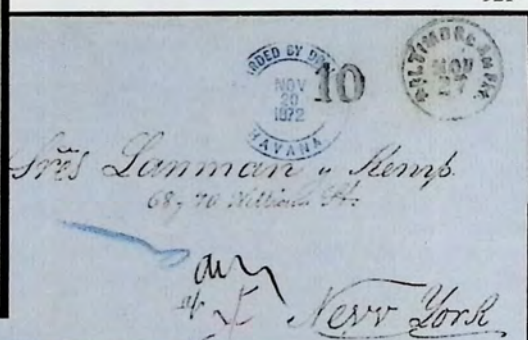 RDED BY DR
NOV
20
1872
HAVANA
10
BALTIMORE AM.PKT.
NOV
27
Srēs Lanman y Kemp.
68 y 70 William St.
New York